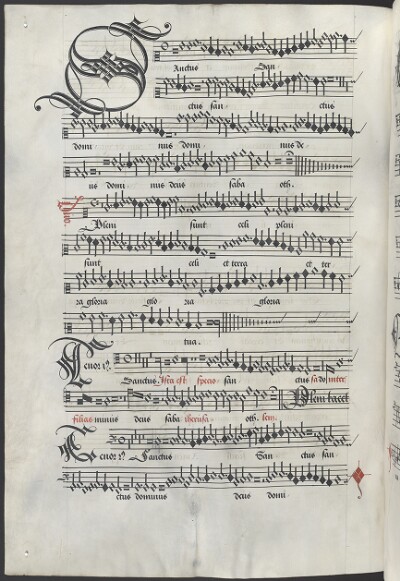 Sanctus San
ctus san ctus
domi nus domi nus de
us domi nus deus saba oth.
Pleni sunt celi pleni
sunt celi et terra et ter
ra gloria glo ria gloria
tua.
Tenor 1us Sanctus Ista est specio san ctus sados inter
filias minus deus saba iherusa oth. lem. Pleni tacet
Tenor 2us Sanctus San ctus san
ctus dominus deus domi